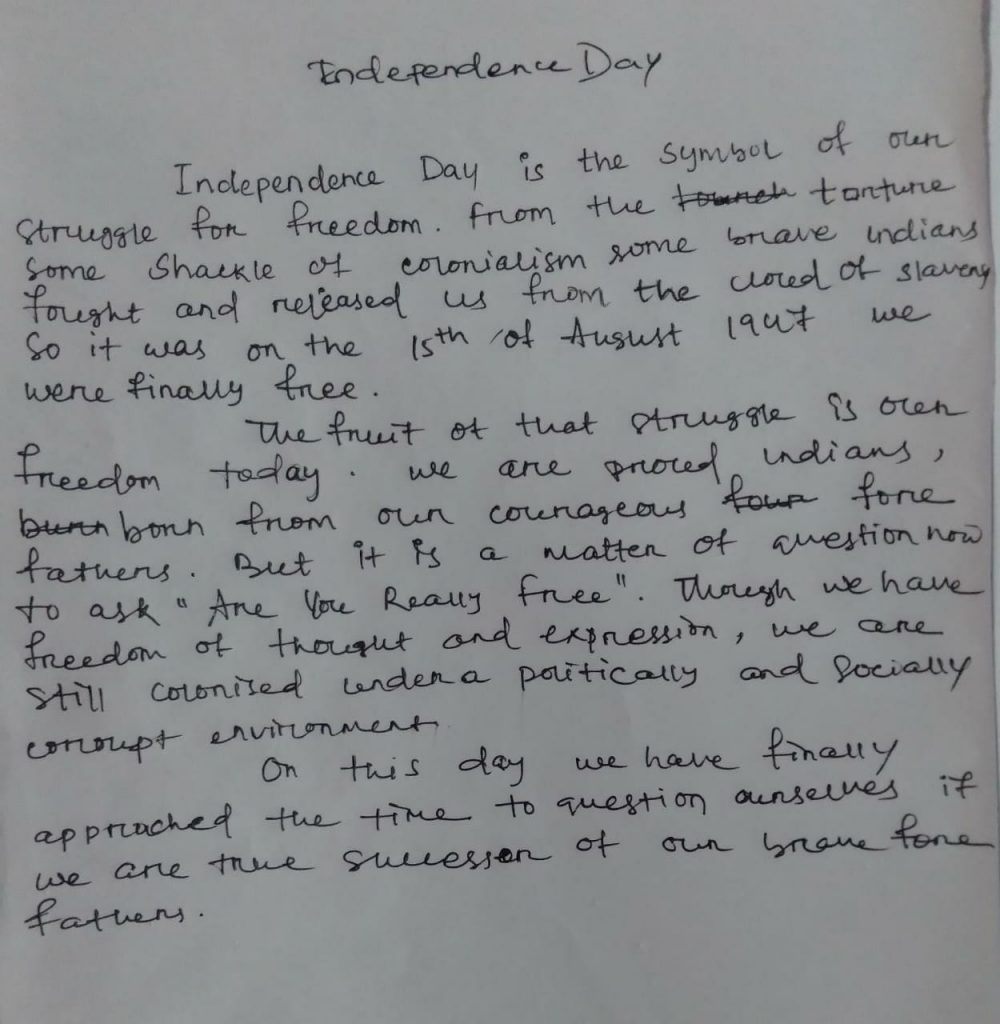 Independence Day
Independence Day is the symbol of our
struggle for freedom. from the torture
some Shackle of colonialism some brave indians
fought and released us from the cloud of slavery
So it was on the 15th of August 1947 we
were finally free.
The fruit of that struggle is our
freedom today. we are proud indians,
born from our courageous fore
fathers. But it is a matter of question now
to ask "Are You Really free". Though we have
freedom of thought and expression, we are
still colonised under a politically and socially
corrupt environment
On this day we have finally
approached the time to question ourselves if
we are true successor of our brave fore
fathers.